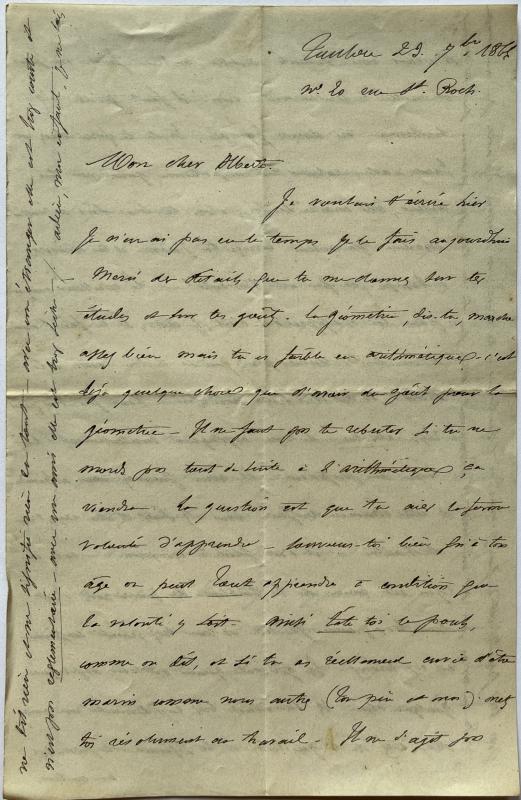 29. 7bre 186
No. 20 rue St. Roch.
Mon cher Albert.
Je voulais t'écrire hier
Je n'en ai pas eu le temps je le fais aujourd'hui
Merci des détails que tu me donnes sur tes
études et sur tes goûts. la géométrie, dis-tu, marche
assez bien mais tu es faible en arithmétique - c'est
déjà quelque chose que d'avoir du goût pour la
géométrie - Il ne faut pas te rebuter si tu ne
mords pas tout de suite à l'arithmétique ça
viendra. la question est que tu aies la ferme
volonté d'apprendre - souviens-toi bien qu'à ton
âge on peut tout apprendre à condition que
la volonté y soit. Ainsi tâte toi le pouls,
comme on dit, et si tu as réellement envie d'être
marin comme nous autres (ton père et moi) mets
toi résolument au travail - Il ne s'agit pas
ne dit rien - avec un étranger elle est trop courte et
n'est pas réglementaire - avec un ami elle est trop - adieu, mon enfant,